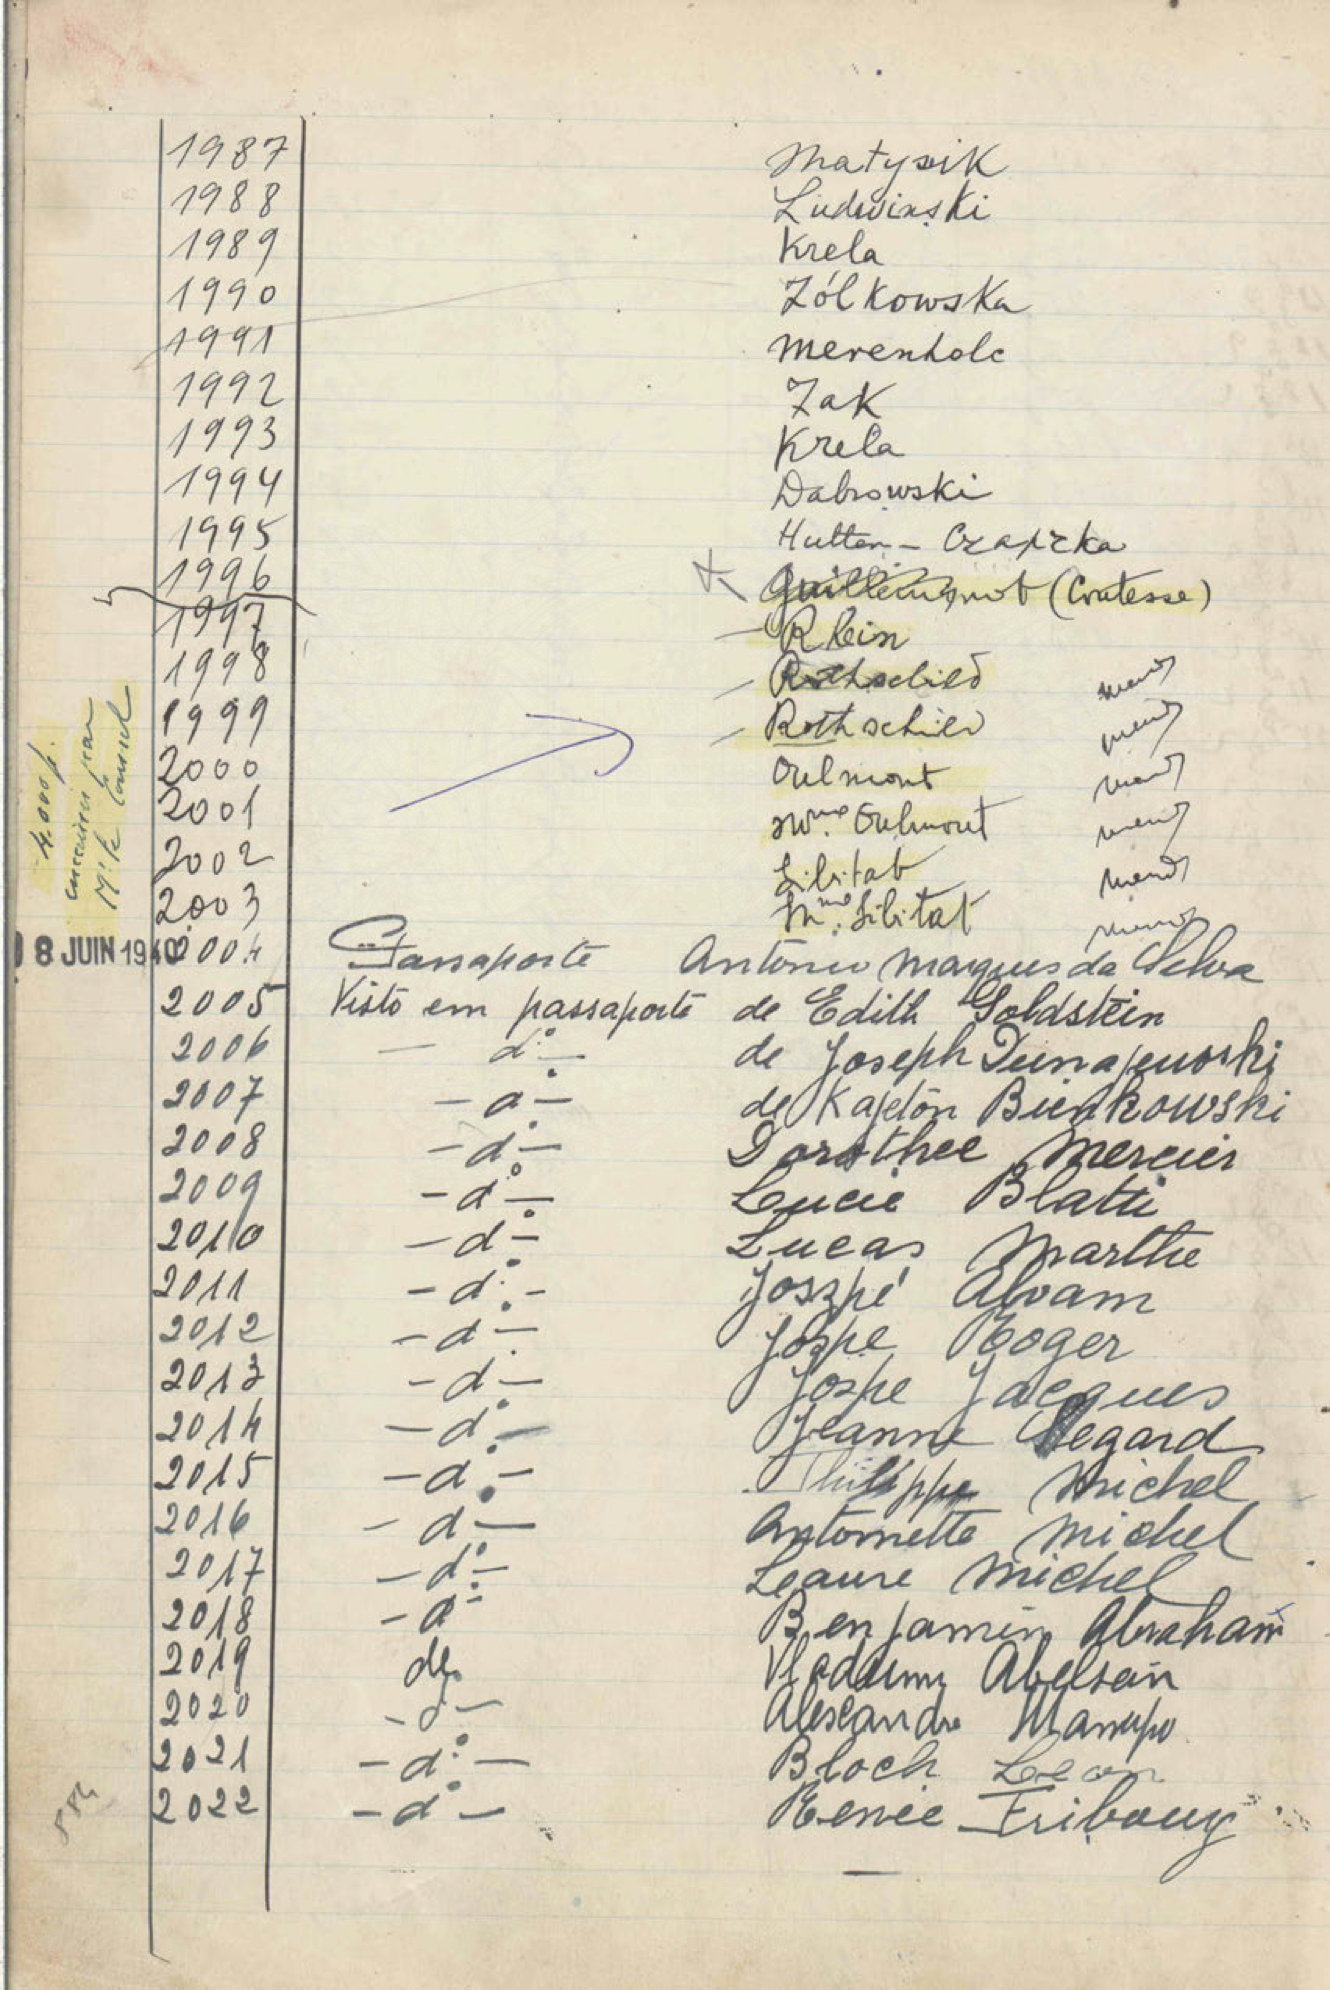 1987 Matysik
1988 Ludwinski
1989 Krela
1990 Zólkowska
1991 Merenholc
1992 Zak
1993 Krela
1994 Dabrowski
1995 Hutten - Czapska
1996 (Contesse)
1997 Klein
1998 Rothschild
1999 Rothschild
2000 Oulmont
2001 Mme Oulmont
2002
2003 Mme
4.000 f.
18 JUIN 1940
2004 Passaporte Antonio Marques da Silva
2005 Visto em passaporte de Edith Goldstein
2006 - dº - de Joseph Dunajewski
2007 - dº - de Kajetan Bienkowski
2008 - dº - Dorothee Mercier
2009 - dº - Lucie Blatti
2010 - dº - Lucas Marthe
2011 - dº - Joszpé
2012 - dº - Jospe Roger
2013 - dº - Jospe Jacques
2014 - dº - Jeanne Segard
2015 - dº - Philippe Michel
2016 - dº - Antoinette Michel
2017 - dº - Leaure Michel
2018 - dº - Benjamin Abraham
2019 dº Abelson
2020 - dº - Alexandre
2021 - dº - Bloch Leon
2022 - dº - Renée Fribourg